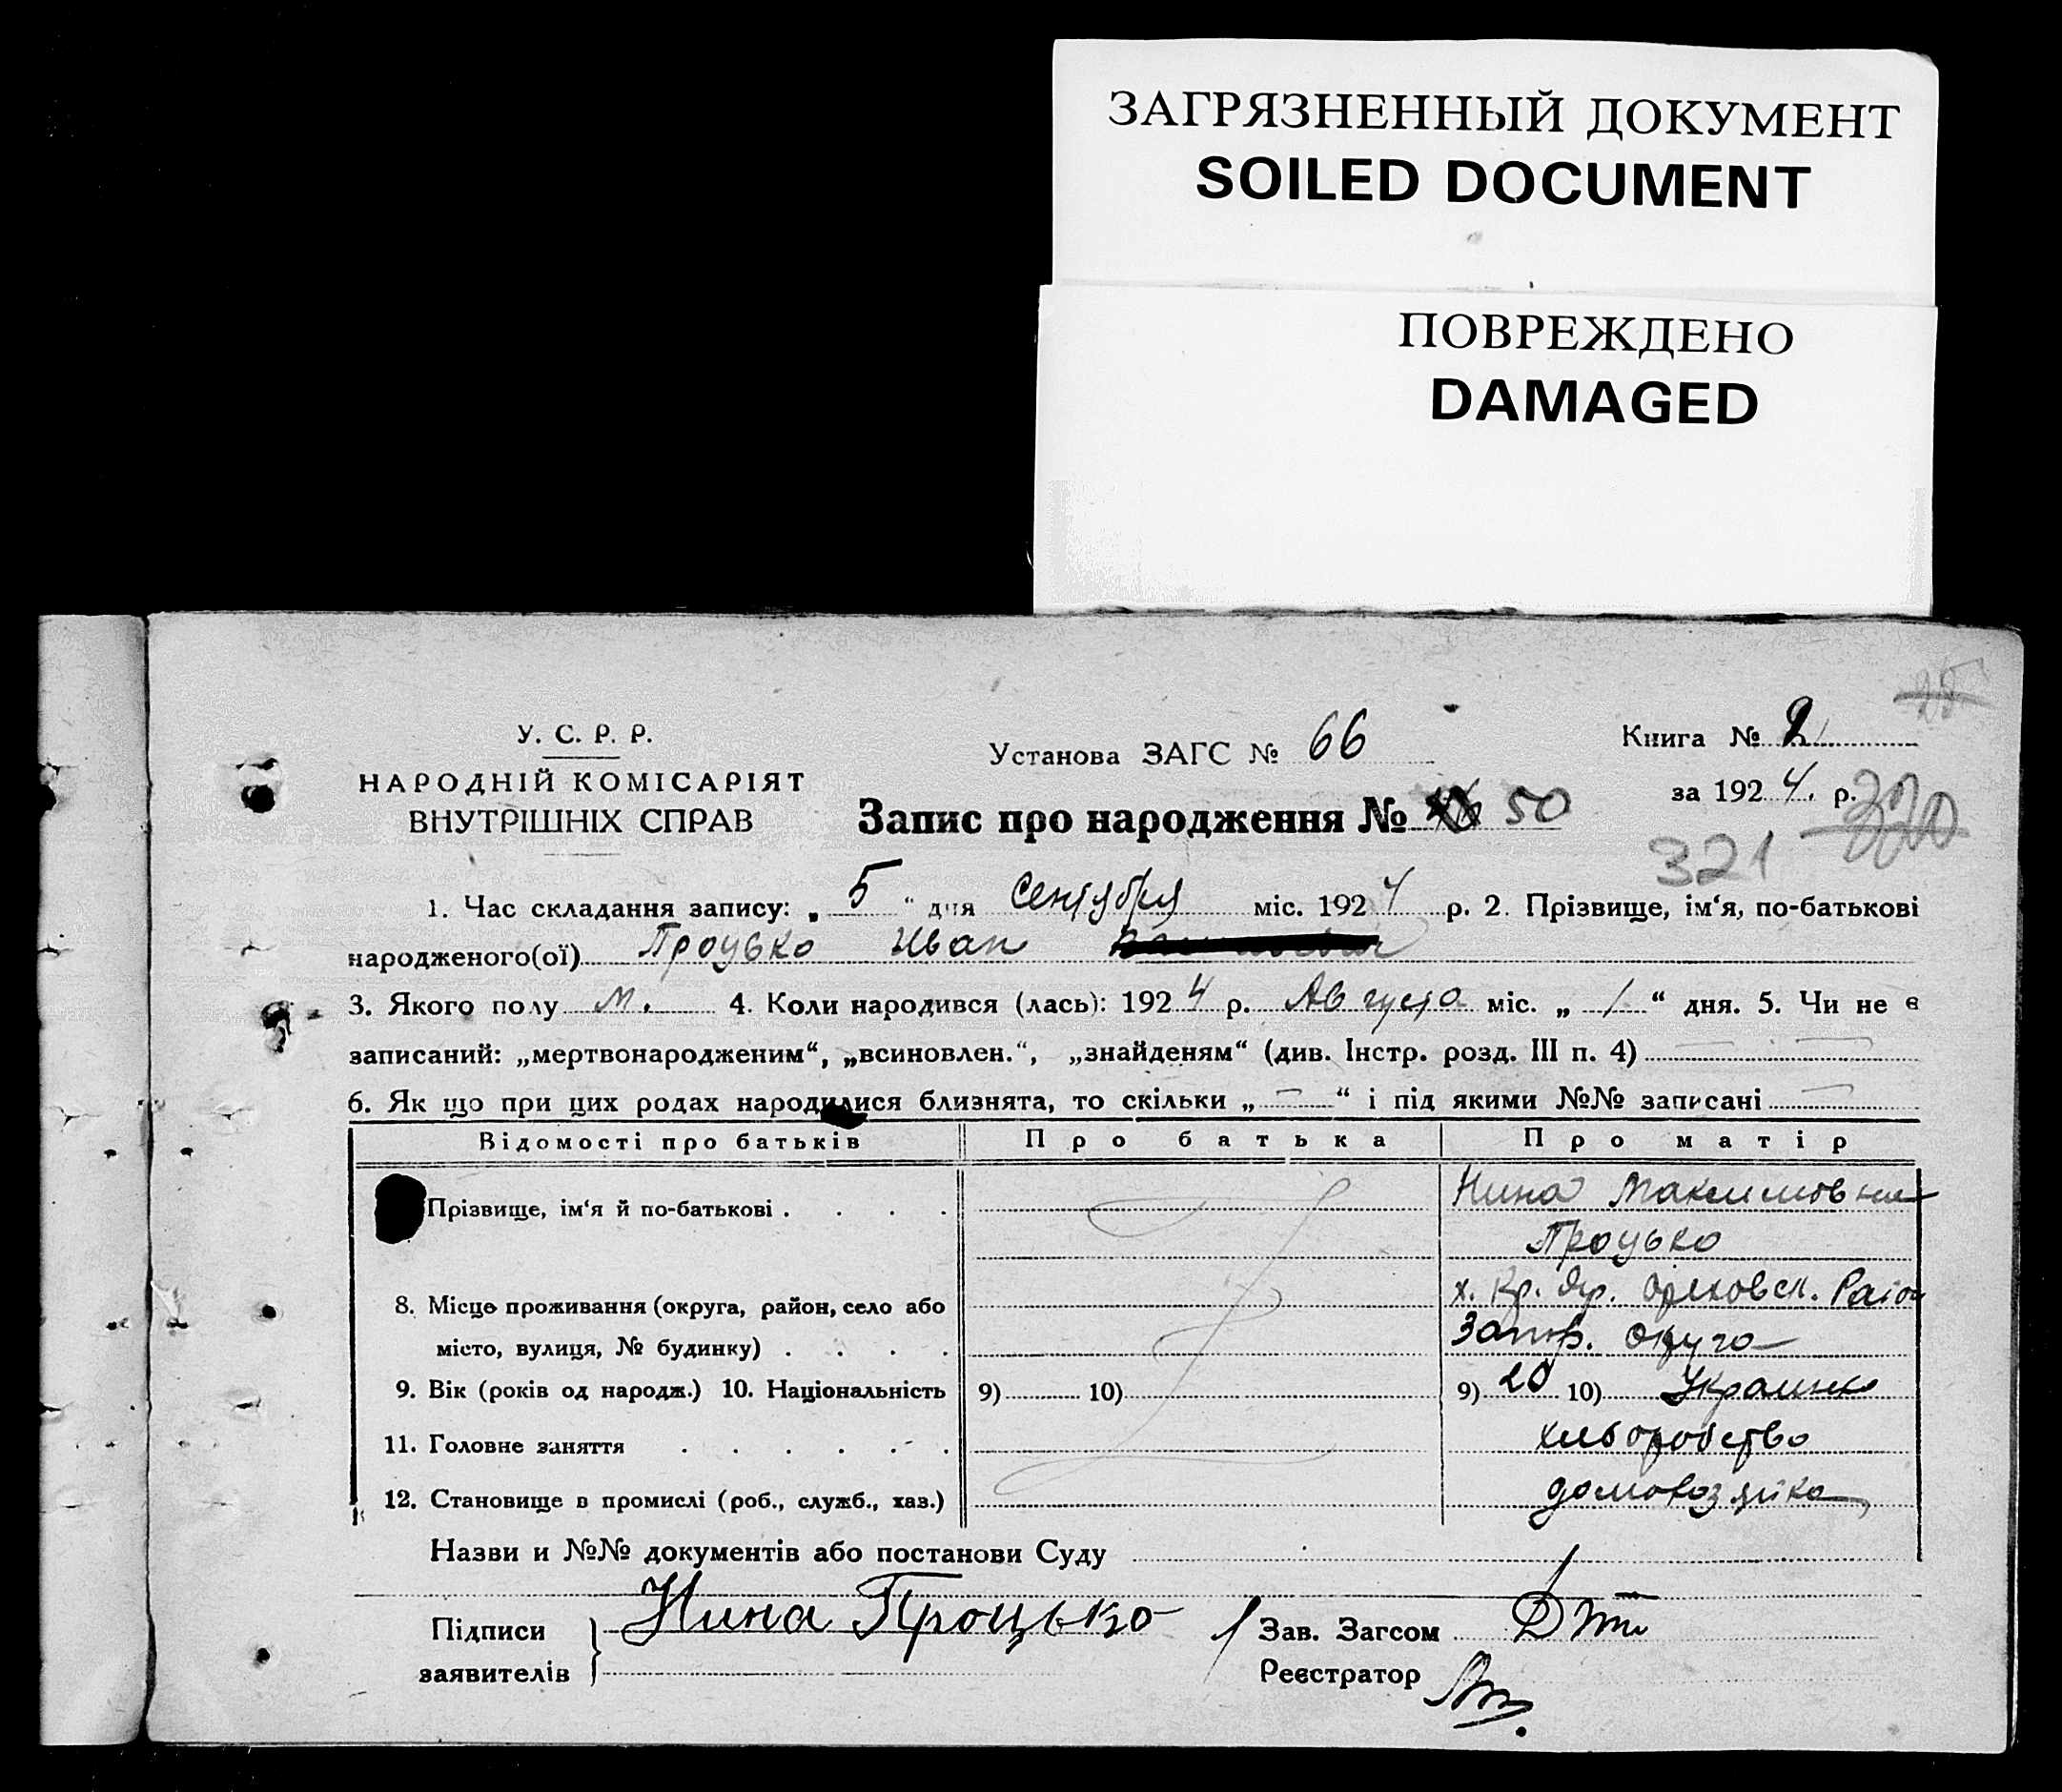 ЗАГРЯЗНЕННЫЙ ДОКУМЕНТ
SOILED DOCUMENT
ПОВРЕЖДЕНО
DAMAGED
25
У. С. Р. Р.
НАРОДНІЙ КОМІСАРІЯТ
ВНУТРІШНІХ СПРАВ
Установа ЗАГС № 66
Книга № 2
за 1924. р.
Запис про народження № 50
321 320
1. Час складання запису: „5“ дня Сентября міс. 1924 р. 2. Прізвище, ім‘я, по-батькові
народженого(ої) Процько Иван
3. Якого полу м. 4. Коли народився (лась): 1924 р. Августа міс. „1“ дня. 5. Чи не є
записаний: „мертвонародженим“, „всиновлен.“, „знайденям“ (див. Інстр. розд. III п. 4) —
6. Як що при цих родах народилися близнята, то скільки „—“ і під якими №№ записані —
Відомості про батьків Про батька Про матір
Прізвище, ім‘я й по-батькові . . . . Нина Максимовна
Процько
8. Місце проживання (округа, район, село або х. Кр. Яр. Ореховск. Район
місто, вулиця, № будинку) . . . . Запор. округа
9. Вік (років од народж.) 10. Національність 9) 10) 9) 20 10) Украинка
11. Головне заняття . . . . . . хлиборобство
12. Становище в промислі (роб., служб., хаз.) домохозяйка
Назви и №№ документів або постанови Суду
Підписи Нина Процько Зав. Загсом
заявителів Реєстратор